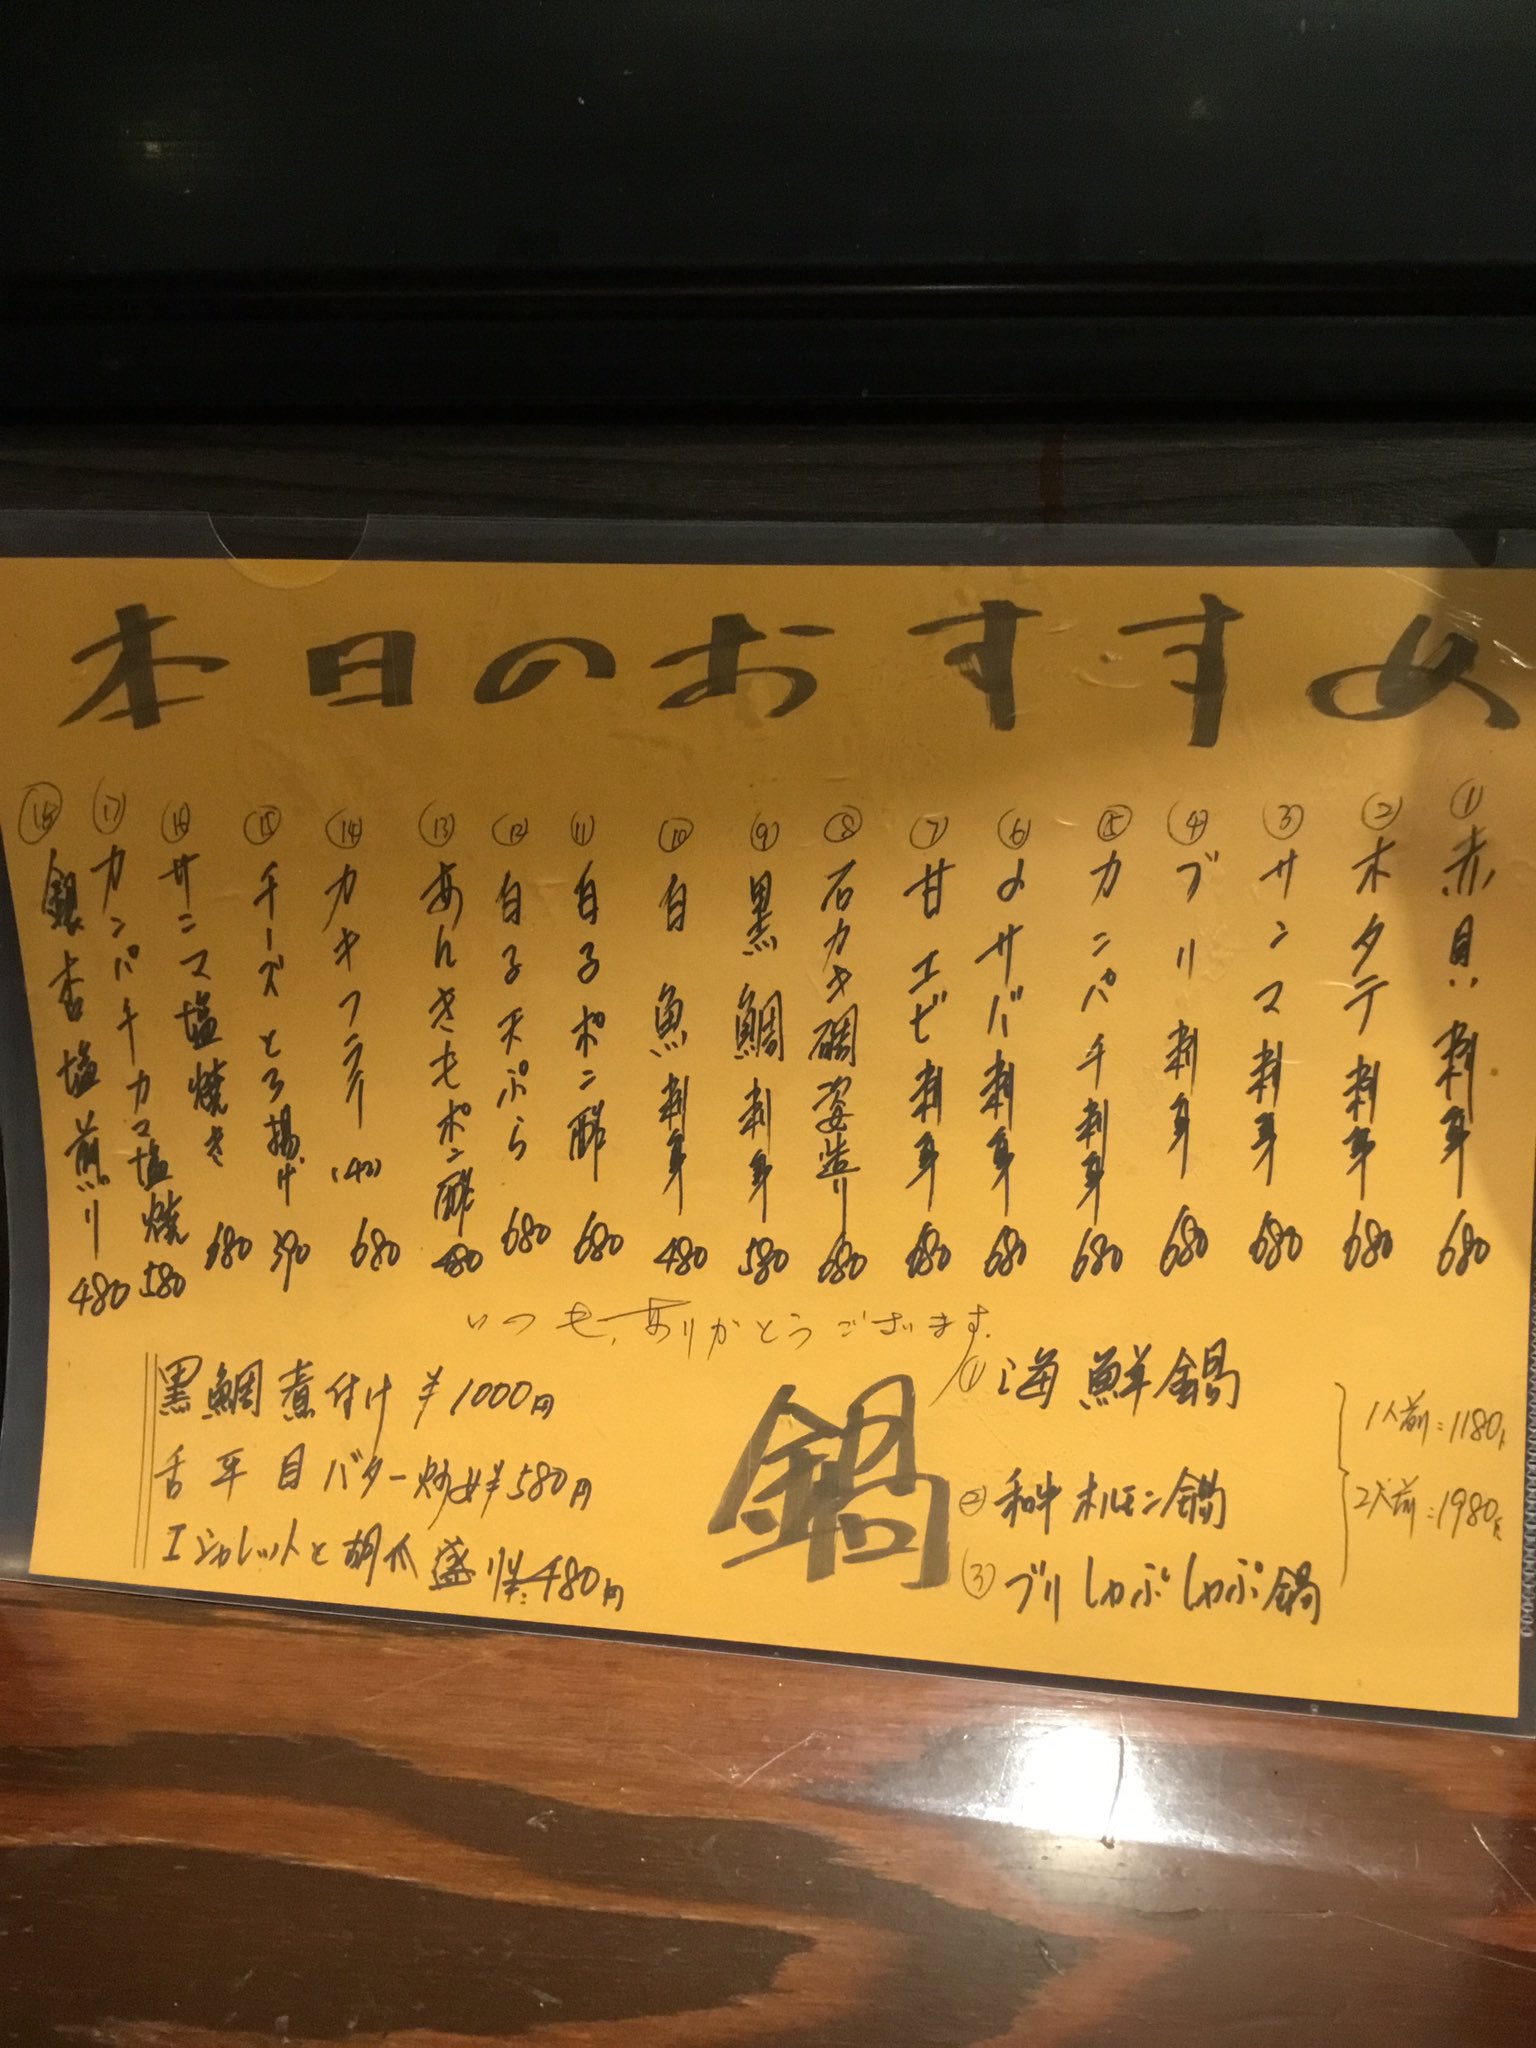 本日のおすすめ
① 赤貝刺身 680
② ホタテ刺身 680
③ サンマ刺身 680
④ ブリ刺身 680
⑤ カンパチ刺身 680
⑥ 〆サバ刺身 680
⑦ 甘エビ刺身 680
⑧ 石カキ 姿造り 680
⑨ 黒鯛刺身 580
⑩ 白魚刺身 480
⑪ 白子ポン酢 680
⑫ 白子天ぷら 680
⑬ あんきもポン酢 480
⑭ カキフライ (4コ) 680
⑮ チーズとろ揚げ 390
⑯ サンマ塩焼き 680
⑰ カンパチカマ塩焼 580
⑱ 銀杏塩煎り 480
いつも、ありがとうございます.
黒鯛煮付け ¥1000円
舌平目バター炒め¥580円
エシャレットと胡瓜盛り¥480円
鍋
① 海鮮鍋
② 和牛ホルモン鍋
③ ブリしゃぶしゃぶ鍋
1人前:1180
2人前:1980